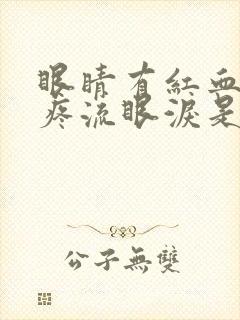 眼睛有紅血
疼流眼淚是
公子無雙